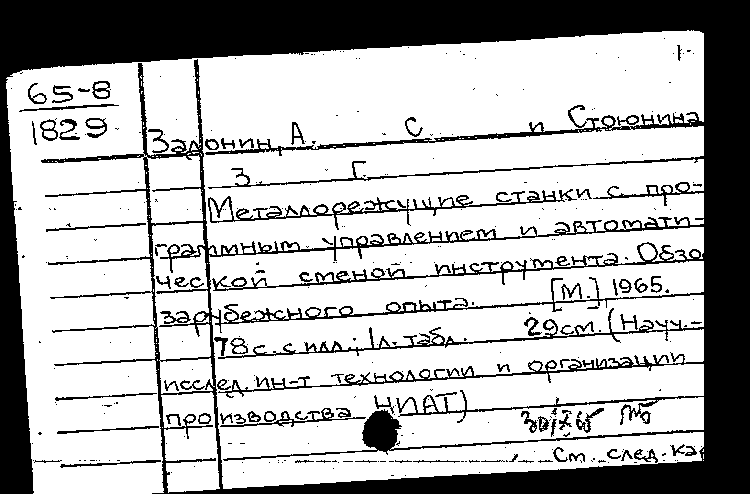 1-
65-8
1829
Задонин, А. С. и Стоюнина
З. Г.
Металлорежущие станки с про-
граммным управлением и автомати-
ческой сменой инструмента. Обзо
зарубежного опыта. [М.] 1965.
78с. с илл.; 1л. табл. 29см. (Науч.-
исслед. ин-т технологии и организации
производства НИАТ)
См. след. кар